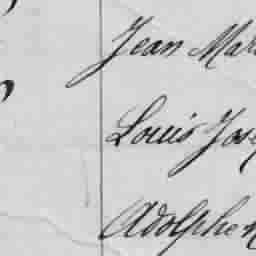 Jean Mar
Louis Jos
Adolphe